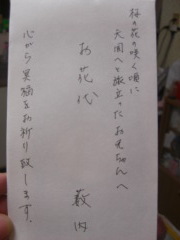 桜の花の咲く頃に
天国へと旅立ったお兄ちゃんへ
お花代
薮内
心から冥福をお祈り致します。